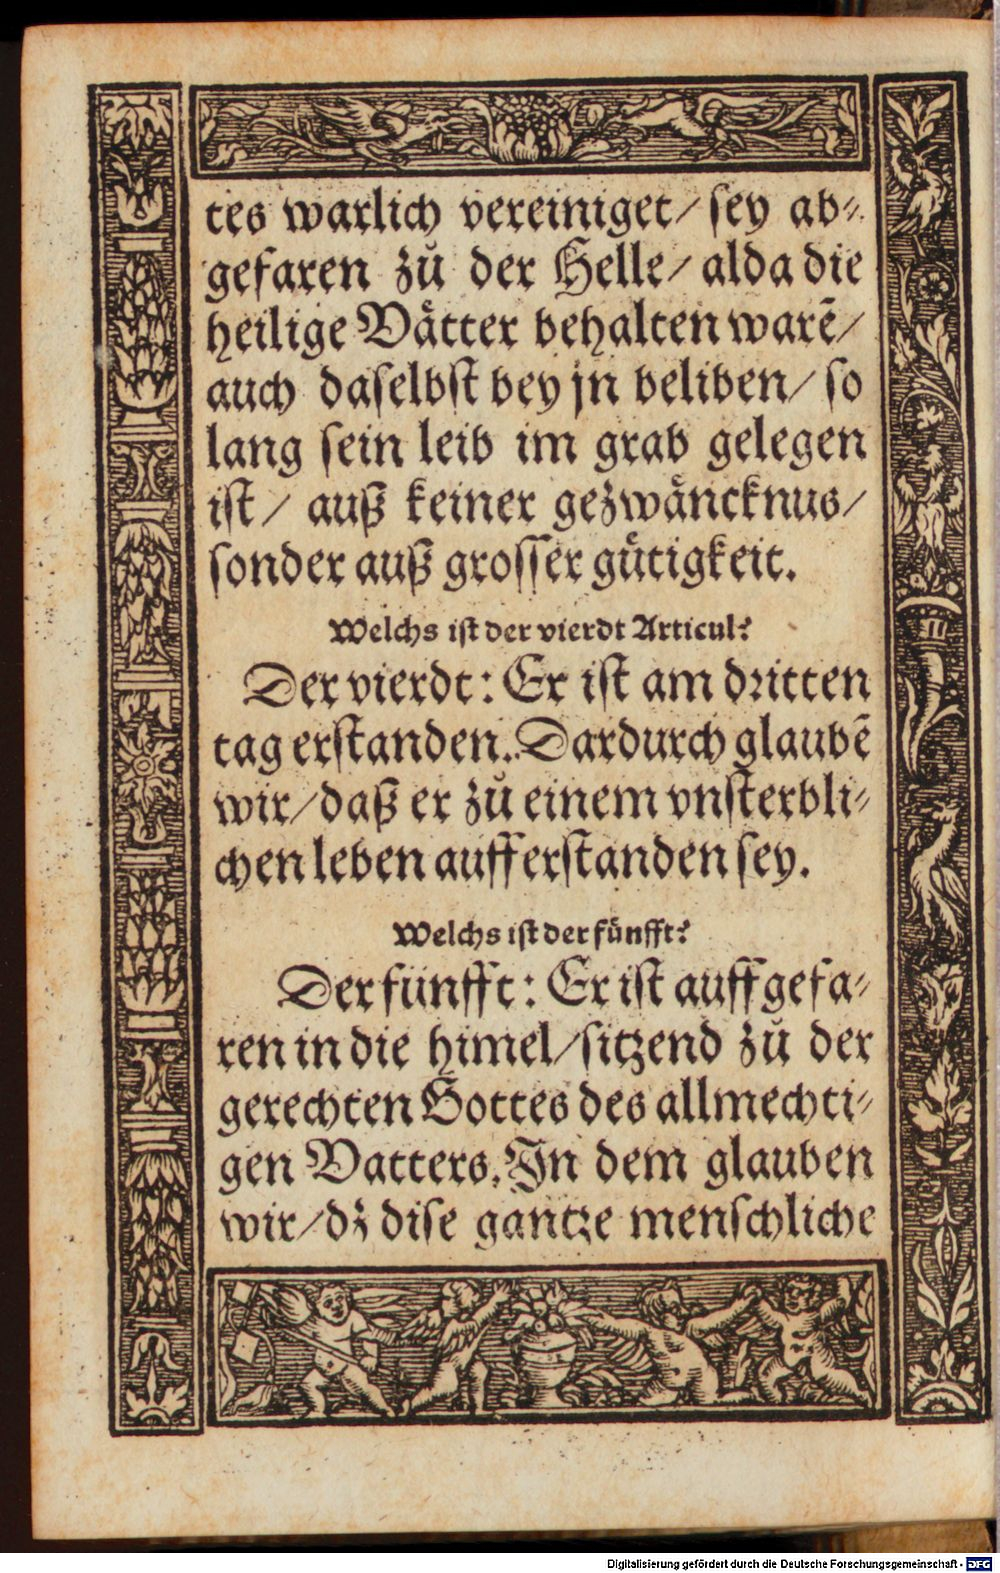 tes warlich vereiniget/ sey ab⸗
gefaren zů der Helle/ alda die
heilige Vätter behalten warẽ/
auch daselbst bey jn beliben/ so
lang sein leib im grab gelegen
ist/ auß keiner gezwäncknus/
sonder auß grosser gütigkeit.
Welchs ist der vierdt Articul?
Der vierdt: Er ist am dritten
tag erstanden. Dardurch glaubẽ
wir/ daß er zů einem vnsterbli⸗
chen leben aufferstanden sey.
Welchs ist der fünfft?
Der fünfft: Er ist auffgefa⸗
ren in die himel/ sitzend zů der
gerechten Gottes des allmechti⸗
gen Vatters. In dem glauben
wir/ dz dise gantze menschliche
Digitalisierung gefördert durch die Deutsche Forschungsgemeinschaft - DFG